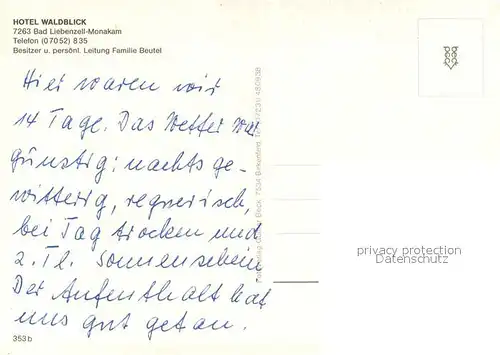 HOTEL WALDBLICK
7263 Bad Liebenzell-Monakam
Telefon (07052) 835
Besitzer u. persönl. Leitung Familie Beutel
Hier waren wir
14 Tage. Das Wetter war
günstig: nachts ge-
witterig, regnerisch,
bei Tag trocken und
z. Tl. Sonnenschein
Der Aufenthalt hat
uns gut getan.
353b
7534 Birkenfeld,
privacy protection
Datenschutz